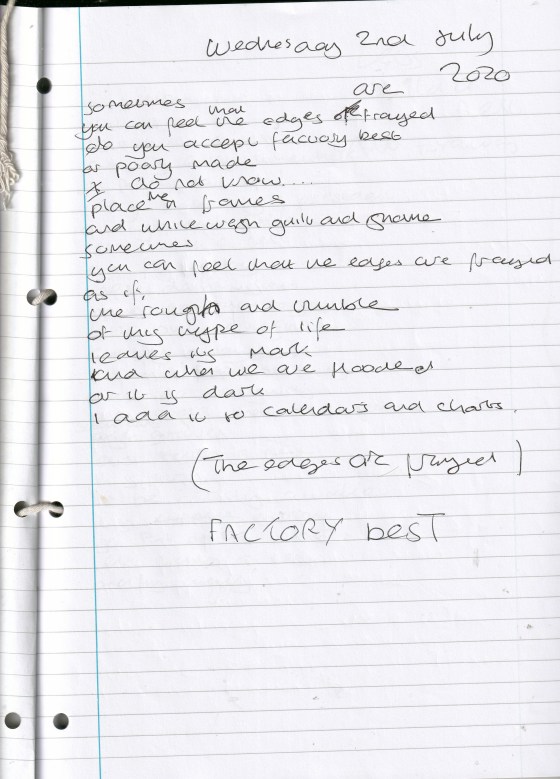 Wednesday 2nd July
2020
sometimes that are
you can feel the edges frayed
do you accept factory best
or poorly made
I do not know....
place me in frames
and whitewash guilt and shame
sometimes
you can feel that the edges are frayed
as if,
the rough and crumble
of this type of life
leaves its mark
and when we are flooded
or it is dark
I add it to calendars and charts.
(The edges are frayed)
FACTORY besT